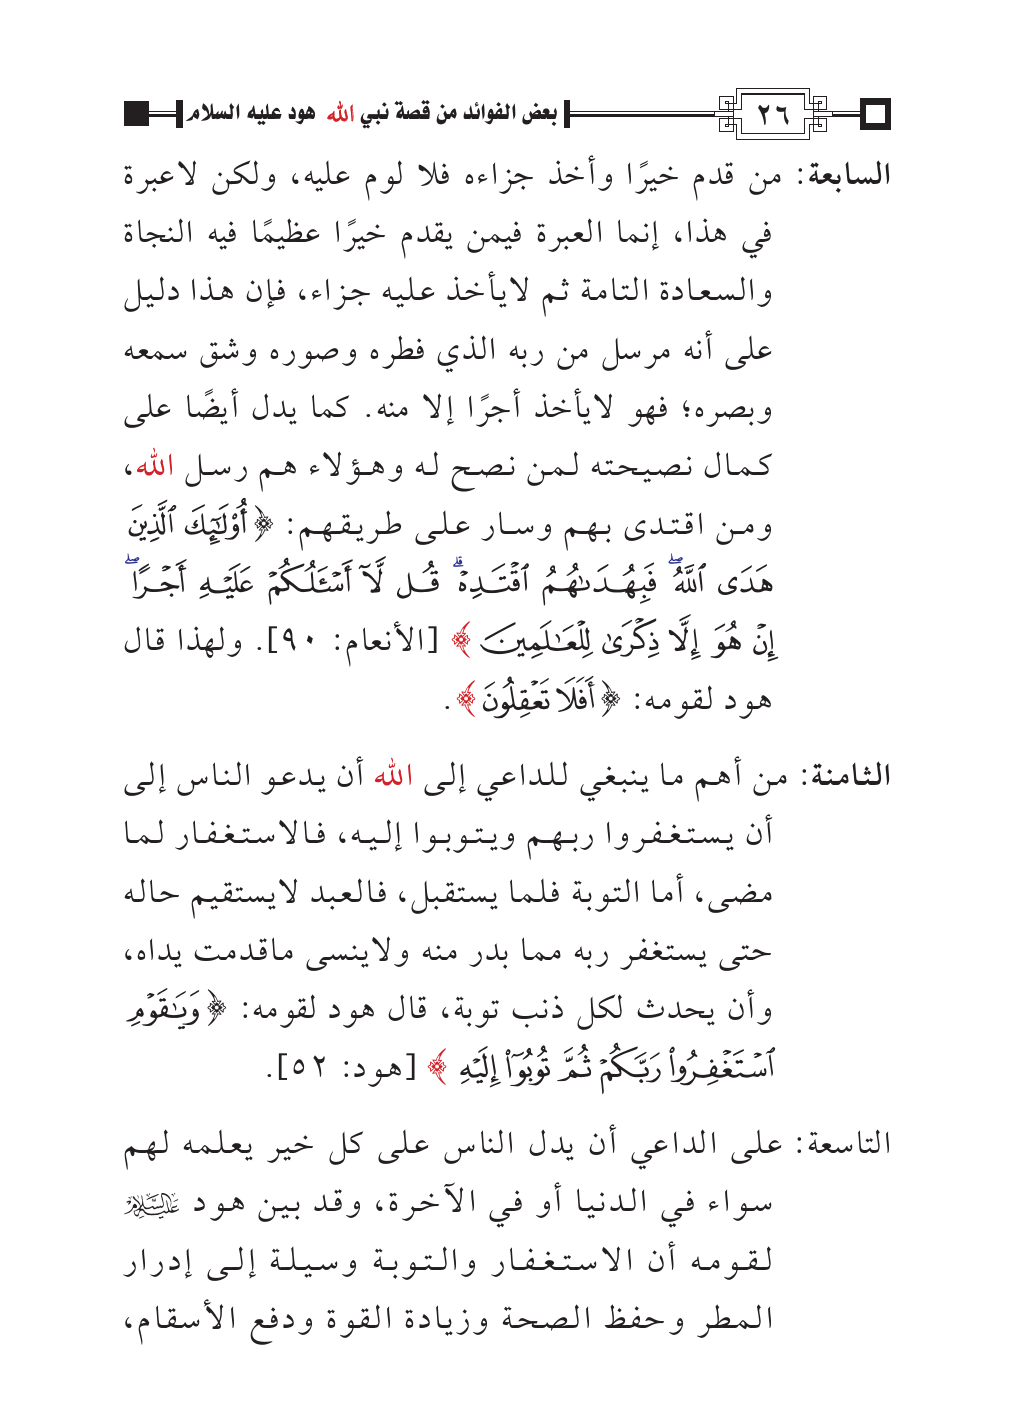 ٢٦ بعض الفوائد من قصة نبي الله هود عليه السلام
السابعة: من قدم خيرًا وأخذ جزاءه فلا لوم عليه، ولكن لاعبرة
في هذا، إنما العبرة فيمن يقدم خيرًا عظيمًا فيه النجاة
والسعادة التامة ثم لايأخذ عليه جزاء، فإن هذا دليل
على أنه مرسل من ربه الذي فطره وصوره وشق سمعه
وبصره؛ فهو لايأخذ أجرًا إلا منه. كما يدل أيضًا على
كمال نصيحته لمن نصح له وهؤلاء هم رسل الله،
ومن اقتدى بهم وسار على طريقهم: ﴿أُوْلَـٰٓئِكَ ٱلَّذِينَ
هَدَى ٱللَّهُۖ فَبِهُدَىٰهُمُ ٱقْتَدِهْۗ قُل لَّآ أَسْـَٔلُكُمْ عَلَيْهِ أَجْرًاۖ
إِنْ هُوَ إِلَّا ذِكْرَىٰ لِلْعَـٰلَمِينَ﴾ [الأنعام: ٩٠]. ولهذا قال
هود لقومه: ﴿أَفَلَا تَعْقِلُونَ﴾.
الثامنة: من أهم ما ينبغي للداعي إلى الله أن يدعو الناس إلى
أن يستغفروا ربهم ويتوبوا إليه، فالاستغفار لما
مضى، أما التوبة فلما يستقبل، فالعبد لايستقيم حاله
حتى يستغفر ربه مما بدر منه ولاينسى ماقدمت يداه،
وأن يحدث لكل ذنب توبة، قال هود لقومه: ﴿وَيَـٰقَوْمِ
ٱسْتَغْفِرُوا۟ رَبَّكُمْ ثُمَّ تُوبُوٓا۟ إِلَيْهِ﴾ [هود: ٥٢].
التاسعة: على الداعي أن يدل الناس على كل خير يعلمه لهم
سواء في الدنيا أو في الآخرة، وقد بين هود عليه السلام
لقومه أن الاستغفار والتوبة وسيلة إلى إدرار
المطر وحفظ الصحة وزيادة القوة ودفع الأسقام،